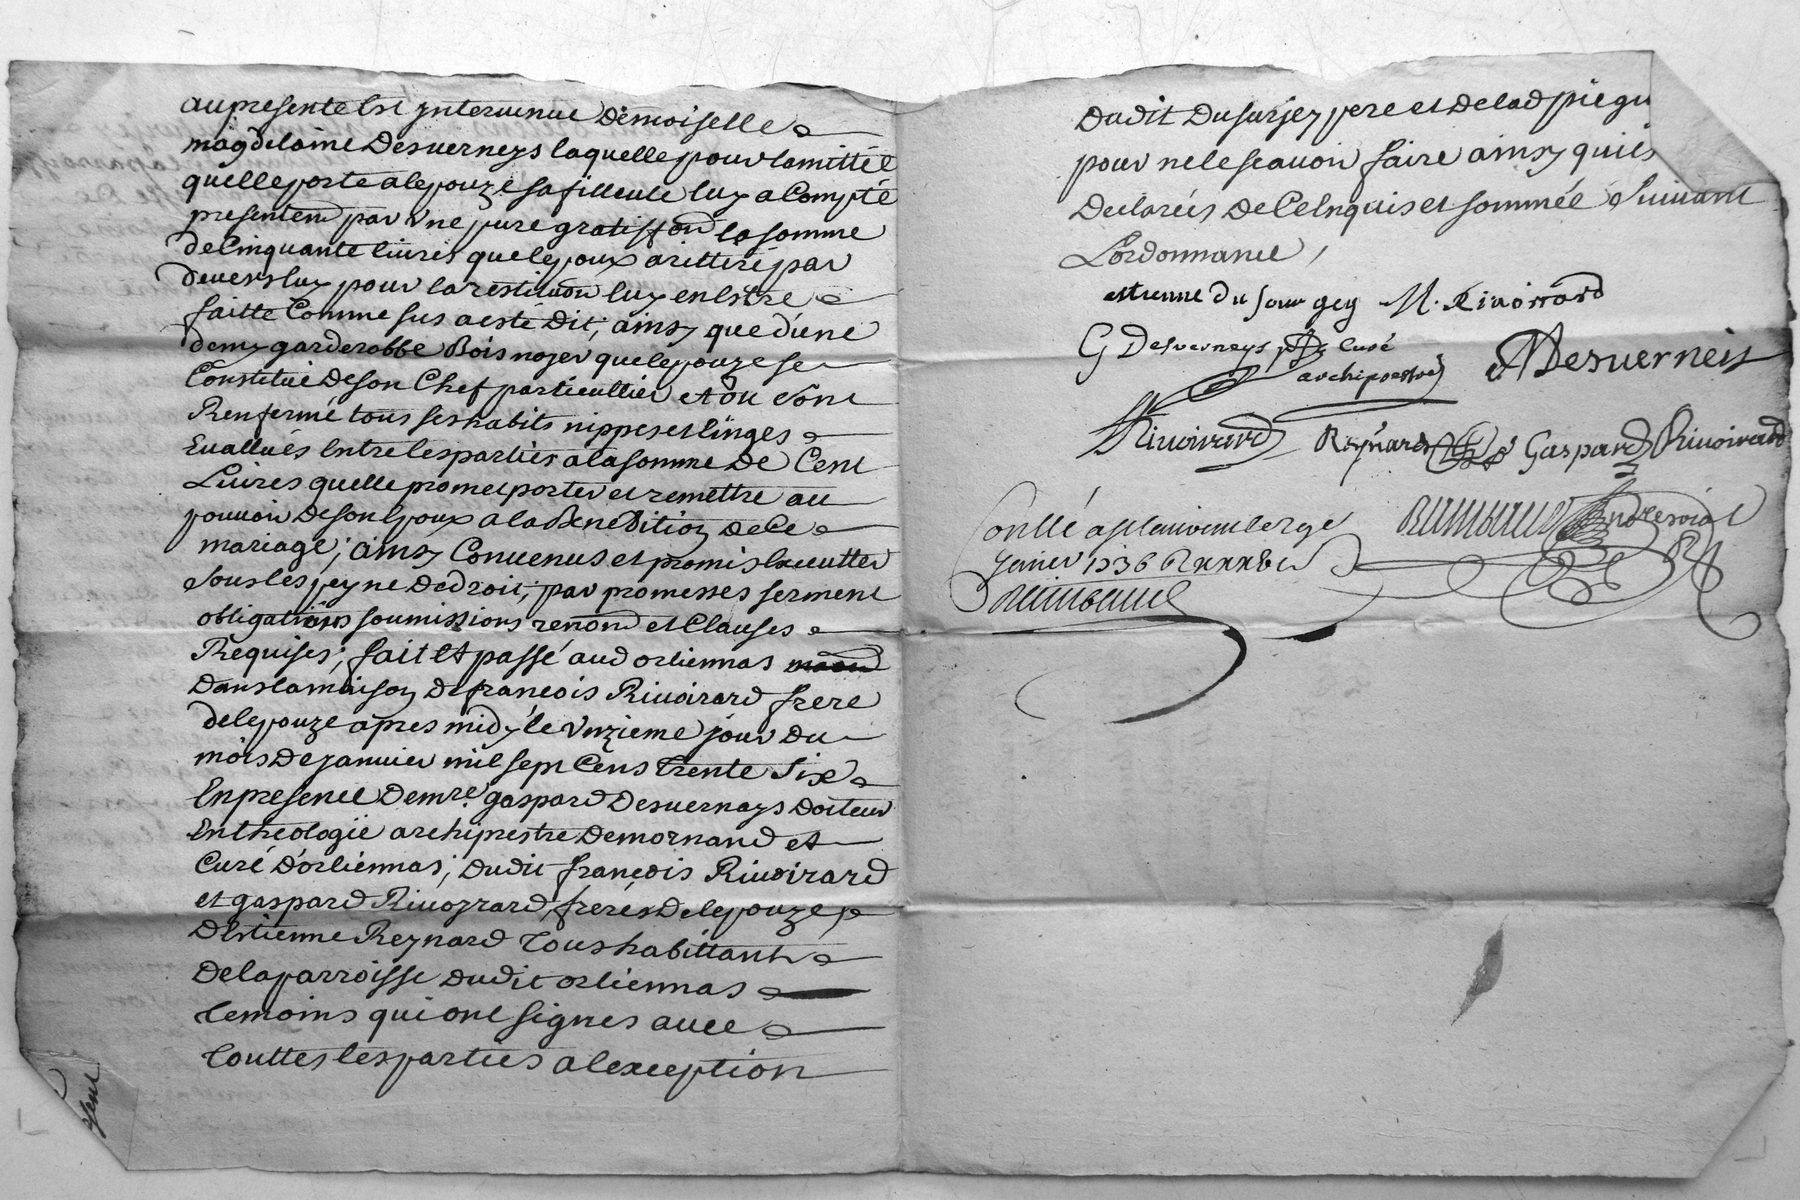 au presente Est yntervenue Demoiselle
magdelaine Desverneys laquelle pour lamittié
quelle porte a lepouze sa filleule luy a Compté
presentem par une pure gratiffon la somme
de Cinquante livres que lepoux a rettiré par
devers luy pour la restituon luy en Estre
faitte Comme sus a esté Dit, ainsy que d'une
demy garderobbe Bois noyer que lepouze se
Constitue De son Chef particullier et ou sont
Renfermé tous ses habits nippes et linges
Evallués Entre les parties a la somme De Cent
Livres quelle promet porter et remettre au
pouvoir De son Epoux a la Benedition De Ce
mariage; ainsy Convenus et promis Executter
sous les peyne De droit, par promesses serment
obligations soumissions renond et Clauses
Requises, fait et passé aud orliennas
Dans la maison De françois Rivoirard frere
de lepouze apres midy le Unzieme jour Du
mois De janvier mil sept Cens trente Six
En presence De mre. gaspard Desvernays Docteur
En theologie archiprestre De mornand et
Curé D'orliennas, Dudit françois Rivoirard
et gaspard Rivoyrard freres De lepouze,
D'Estienne Reynard tous habittant
De la parroisse Dudit orliennas
temoins qui ont signes avec
touttes les parties a lexception
Dudit Dusurjey pere et De lad pie
pour ne le scavoir faire ainsy quils
Declarés De Ce Enquis et sommée Suivant
L'ordonnance
estienne du sour gey M. Rivoirard
G Desverneys Curé
archiprestre
ADesverneys
Rivoirard Reynard Gaspard Rivoirard
Conllé a
Janier 1736
Raimbaud